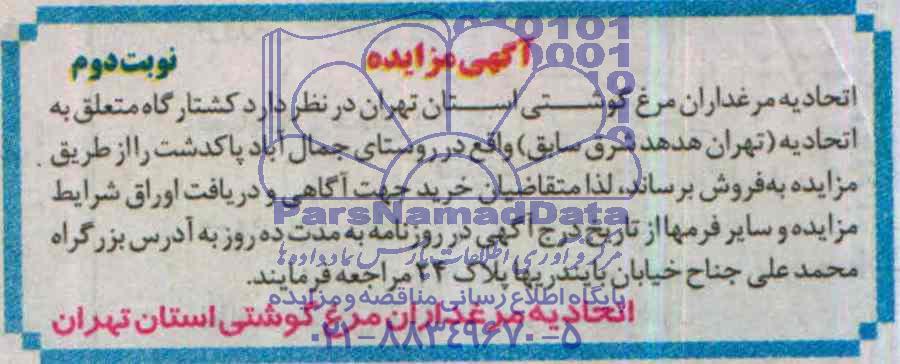 آگهی مزایده
نوبت دوم
اتحادیه مرغداران مرغ گوشتی استان تهران در نظر دارد کشتارگاه متعلق به
اتحادیه (تهران هدهد شرق سابق) واقع در روستای جمال آباد پاکدشت را از طریق
مزایده به فروش برساند، لذا متقاضیان خرید جهت آگاهی و دریافت اوراق شرایط
مزایده و سایر فرمها از تاریخ درج آگهی در روزنامه به مدت ده روز به آدرس بزرگراه
محمد علی جناح خیابان پایندریها پلاک ۲۴ مراجعه فرمایند.
اتحادیه مرغداران مرغ گوشتی استان تهران
ParsNamadData
مرکز فرآوری اطلاعات پارس نماد داده ها
پایگاه اطلاع رسانی مناقصه و مزایده
۰۲۱-۸۸۳۴۹۶۷۰-۵